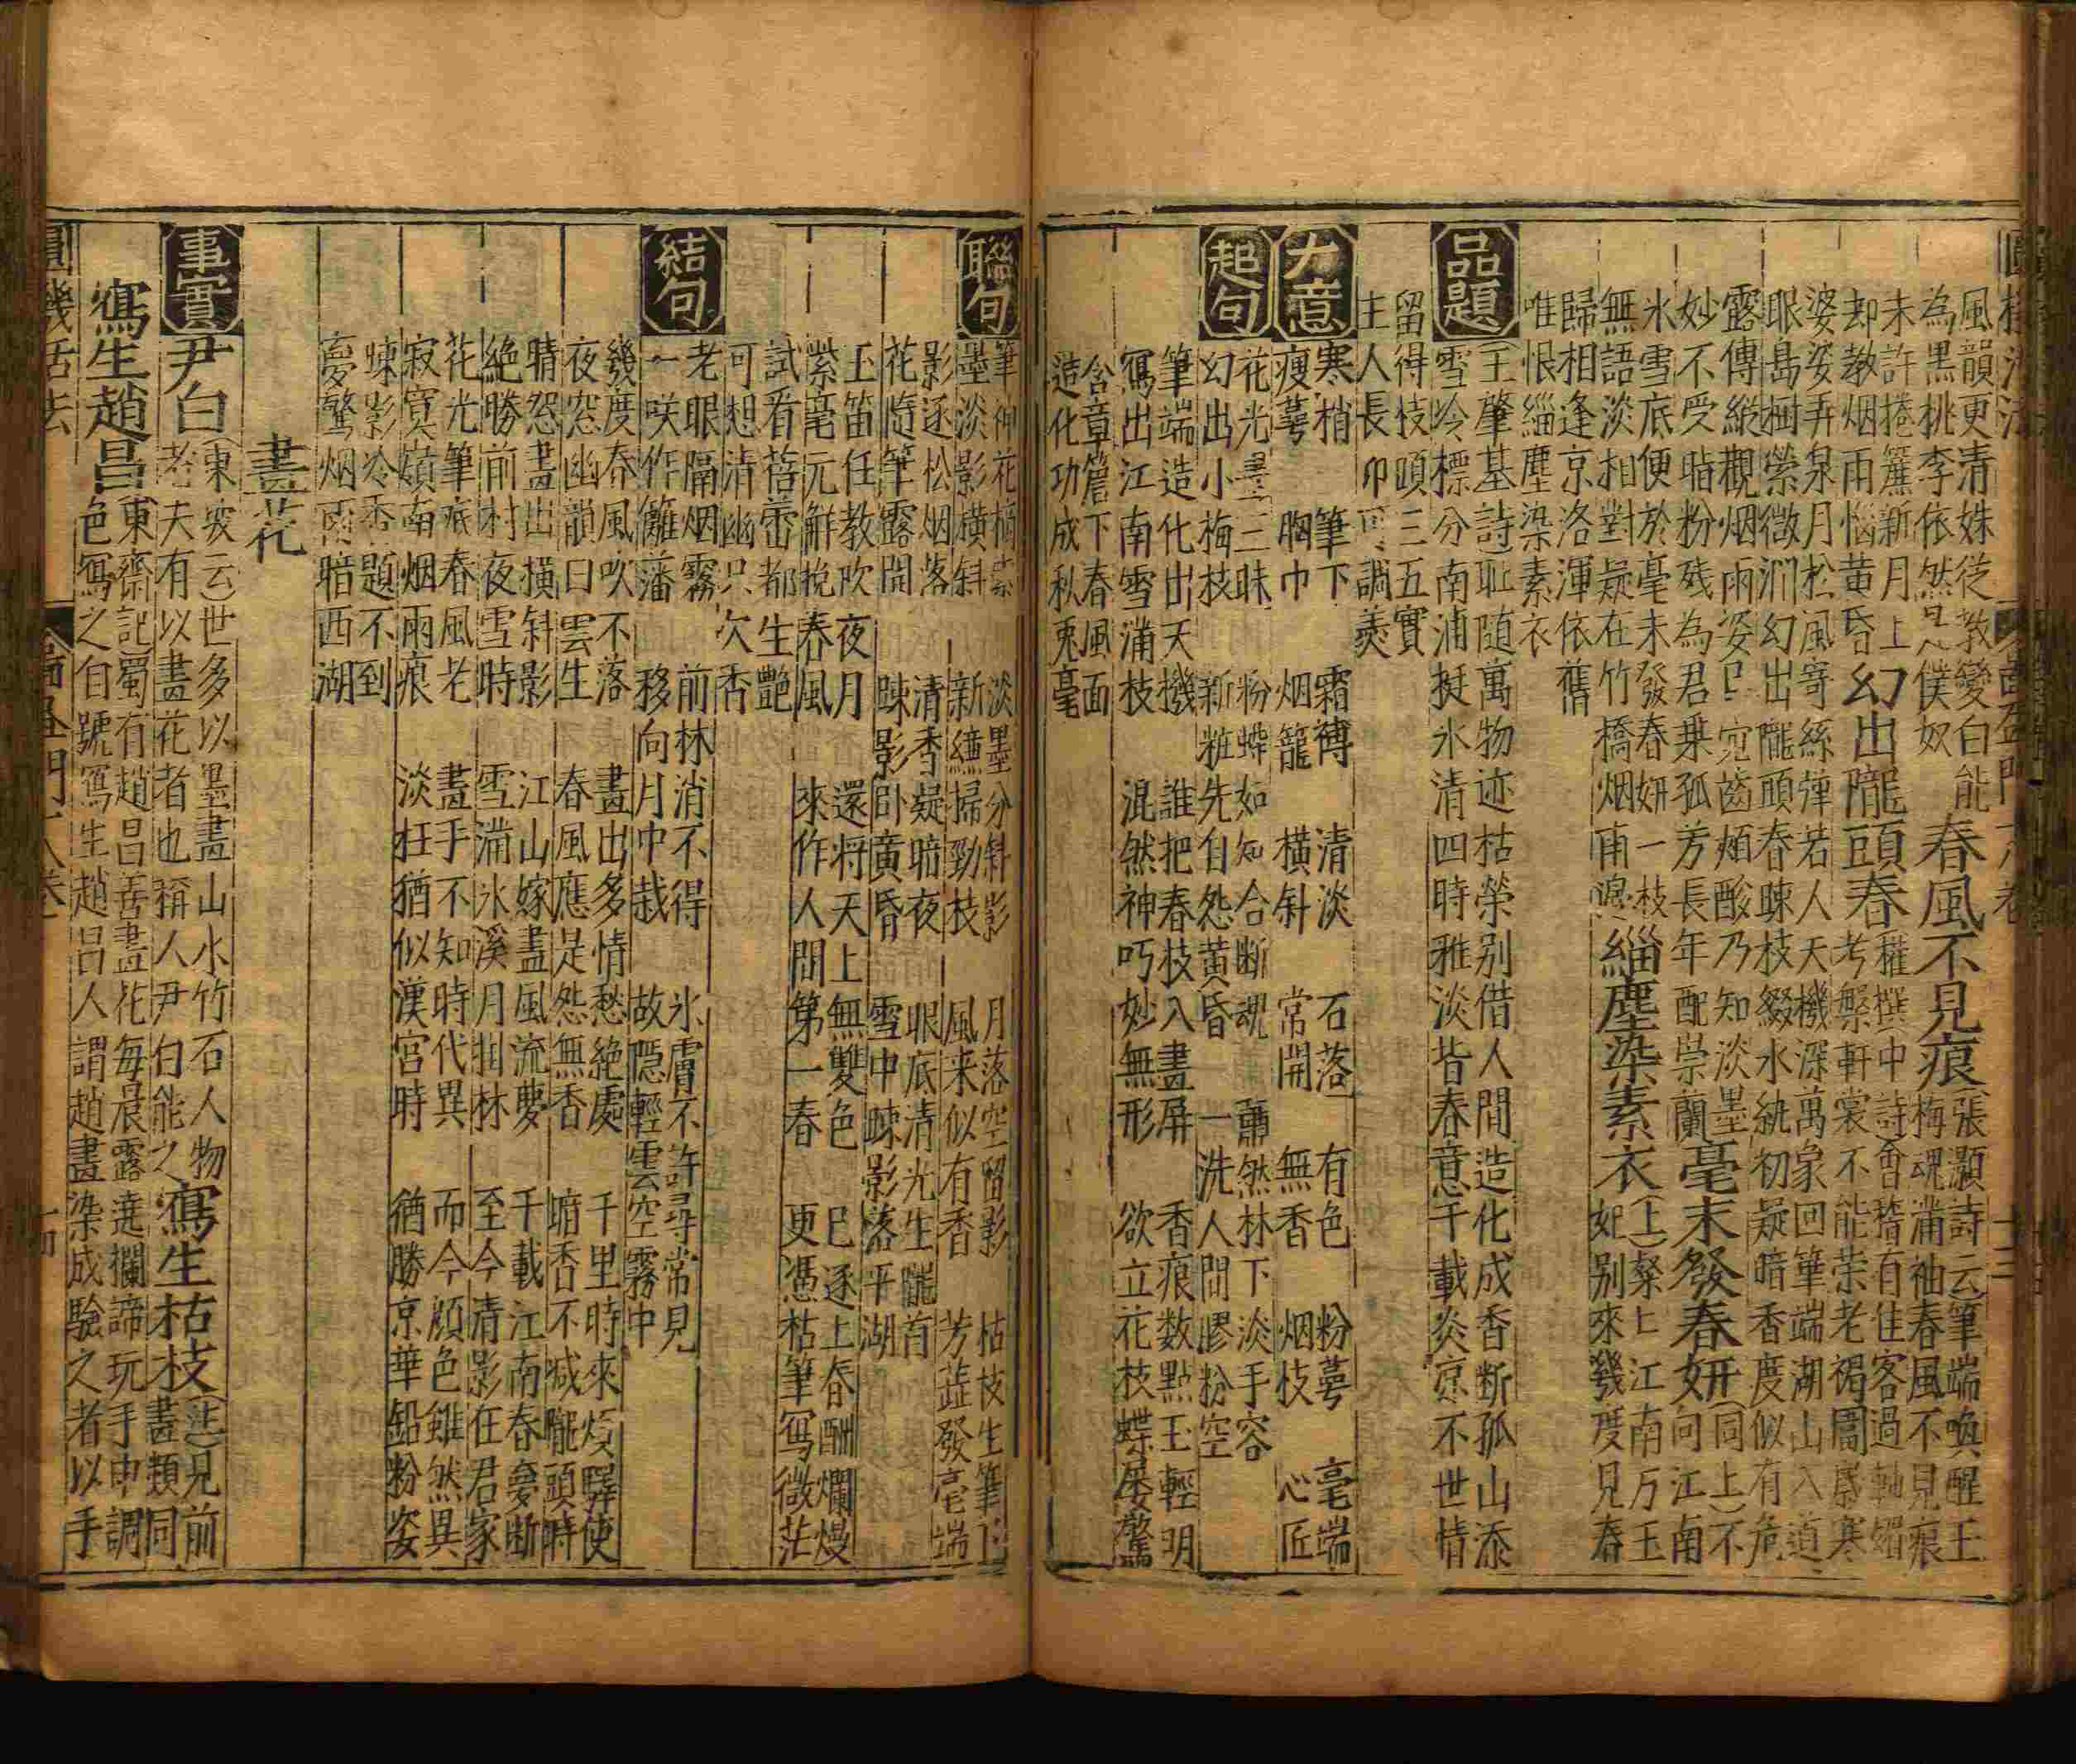 風韻更清姝從教變白能
為黑桃李依然是僕奴
春風不見痕
張灝詩云筆端喚醒王
梅魂滿袖春風不見痕
未許捲簾新月上
却教烟雨惱黄昏
幻出隴頭春
中詩會稽有佳客過軸媚
考槃軒裳不能荣老褐圍㞃寒
婆娑弄泉月松風寄絲彈若人天機深萬象回筆端湖山入道
眼島樹縈微澗幻出隴頭春踈枝綴水紈初疑暗香度似有危
露傳縱觀烟雨姿已宛齒頰酸乃知淡墨
妙不受暗粉殘為君乗孤芳長年配崇蘭
毫末發春妍
同上不
向江南
氷雪底便於毫末發春妍一枝
無語淡相對疑在竹橋烟雨
緇塵染素衣
上粲〻江南万玉
妃别來幾度見春
歸相逢京洛渾依舊
唯恨緇塵染素衣
品題
王肇基詩耻随萬物迹枯荣别借人間造化成香断孤山添
雪吟標分南浦挺氷清四時雅淡皆春意千載炎凉不世情
留得枝頭三五實
主人長卯可調羹
大意
寒梢 筆下 霜薄 清淡 石落 有色 粉萼 毫端
瘦萼 胸巾 烟籠 横斜 常開 無香 烟枝 心匠
起句
花光畫三昧 粉蝶如知合断魂 蕭然林下淡手容
幻出小梅枝 新粧先自怨黄昏 一洗人間膠粉空
筆端造化出天機 誰把春枝入畫屏 香痕数點玉輕明
寫出江南雪滿枝 混然神巧妙無形 欲立花枝蝶屡驚
含章簷下春風面
造化功成秋兎毫
聯句
墨淡影横斜 新縑掃勁枝 風来似有香 芳蕋發毫端
淡墨分斜影 月落空留影 枯枝生筆下
影逐松烟落 清香疑暗夜 眼底清光生隴首
花隨筆露開 踈影卧黄昏 雪中踈影落平湖
玉笛任教吹夜月 還将天上無雙色 已逐上春酬爛熳
紫毫元解挽春風 來作人間第一春 更憑枯筆寫微茫
試看蓓蕾都生艷
可想清幽只欠香
結句
老眼隔烟霧 前林消不得 氷膚不許尋常見
一咲作籬藩 移向月中栽 故隠輕雲空霧中
幾度春風吹不落 畫出多情愁絶處 千里時來煩驛使
夜窓幽韻日雲生 春風應是怨無香 暗香不減隴頭時
晴怨畫出横斜影 江山嫁盡風流夢 千載江南春夢断
絶勝前村夜雪時 雪滿氷溪月掛林 至今清影在君家
花光筆底春風老 畫手不知時代異 而今顔色雖然異
寂寞嶺南烟雨痕 淡粧猶似漢宫時 猶勝京華鉛粉姿
踈影冷香題不到
夢驚烟雨暗西湖
畫花
事實
尹白
東坡云世多以墨畫山水竹石人物
老夫有以畫花者也稱人尹白能之
寫生枯枝
注見前
畫類同
寫生趙昌
東齋記蜀有趙昌善畫花每晨露遶欄諦玩手中調
色寫之自號寫生趙昌人謂趙畫染成驗之者以手